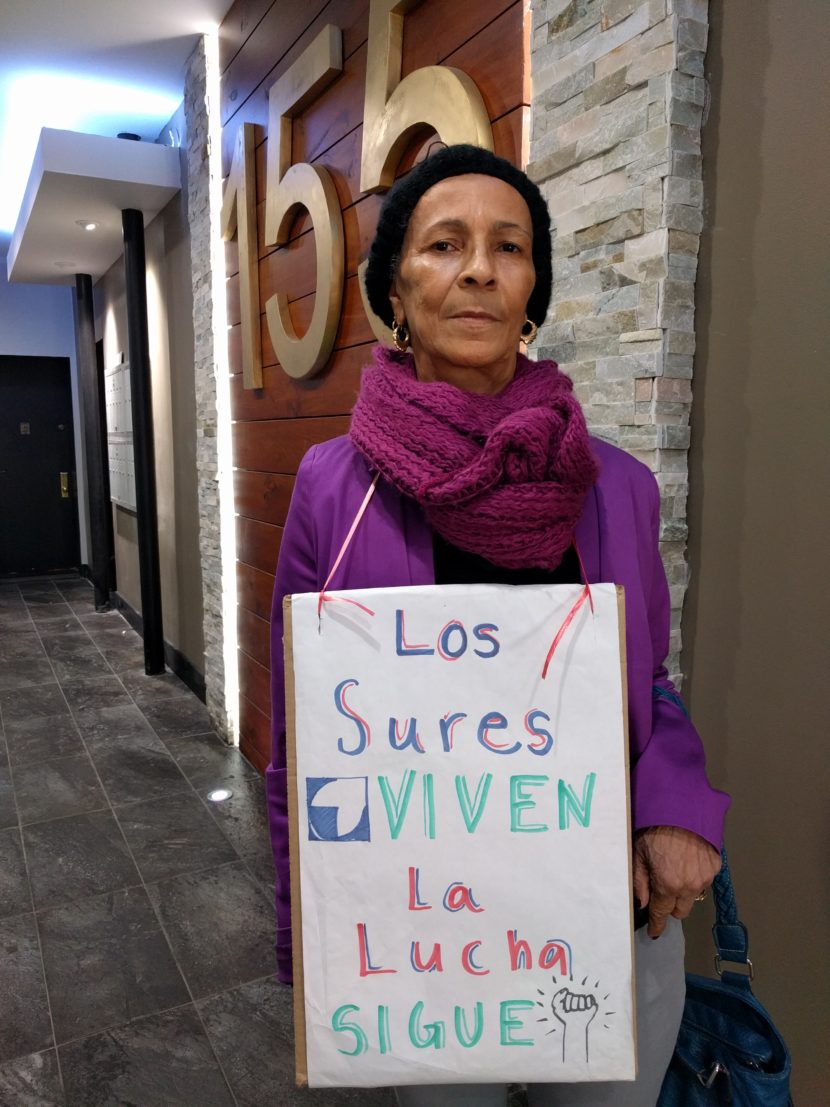 155
Los
Sures
VIVEN
La
Lucha
SIGUE